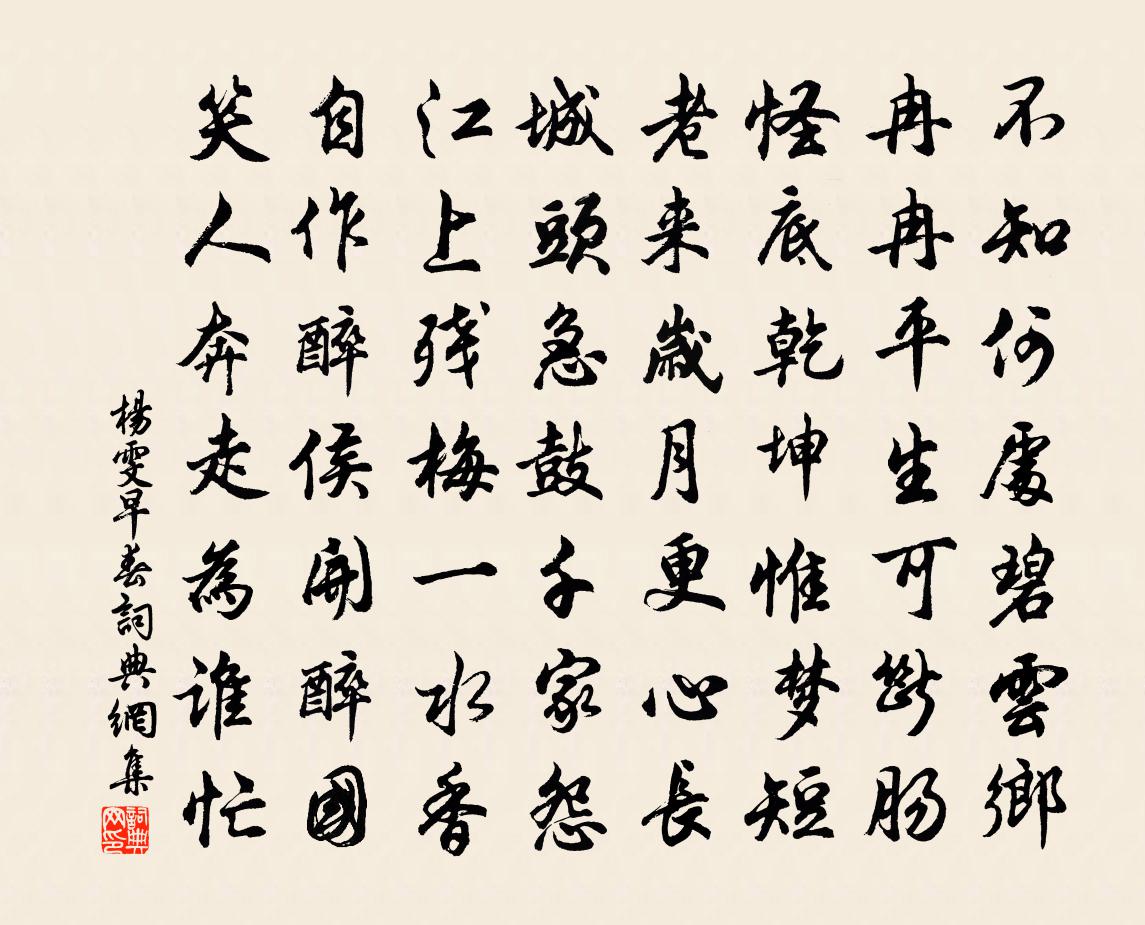 不知何處碧雲鄉
冉冉平生可斷腸
怪底乾坤惟梦短
老来歲月更心長
城頭急鼓千家怨
江上残梅一水香
自作醉侯開醉國
笑人奔走為誰忙
楊雯早春詞典網集
詞典
网印